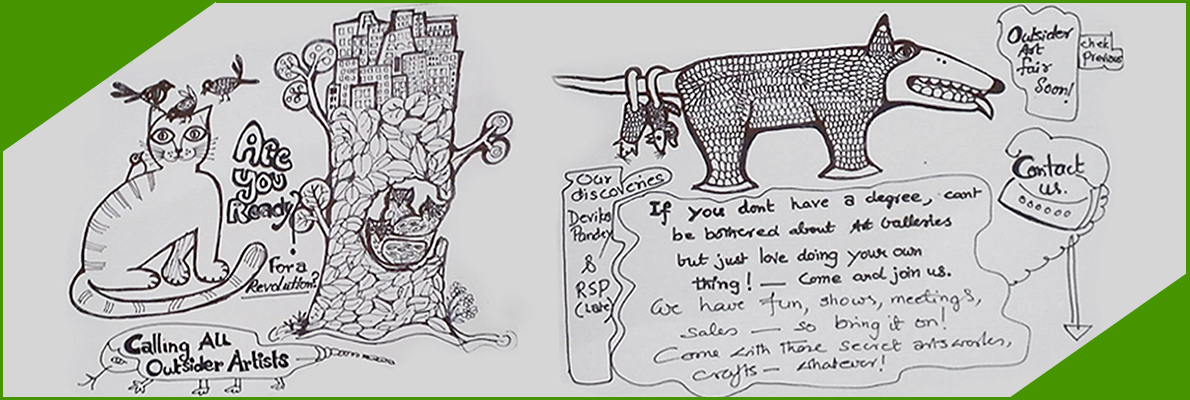 Are
you
Ready?
For a
Revolution?
Calling All
Outsider Artists
Outsider
Art
fair
Soon!
chek
Previous
Contact
us.
Our
discoveries
Devika
Pandey
&
RSP
(Late)
If you dont have a degree, cant
be bothered about Art Galleries
but just love doing your own
thing! — Come and join us.
We have fun, shows, meetings,
sales — so bring it on!
Come with those secret arts works,
crafts — whatever!